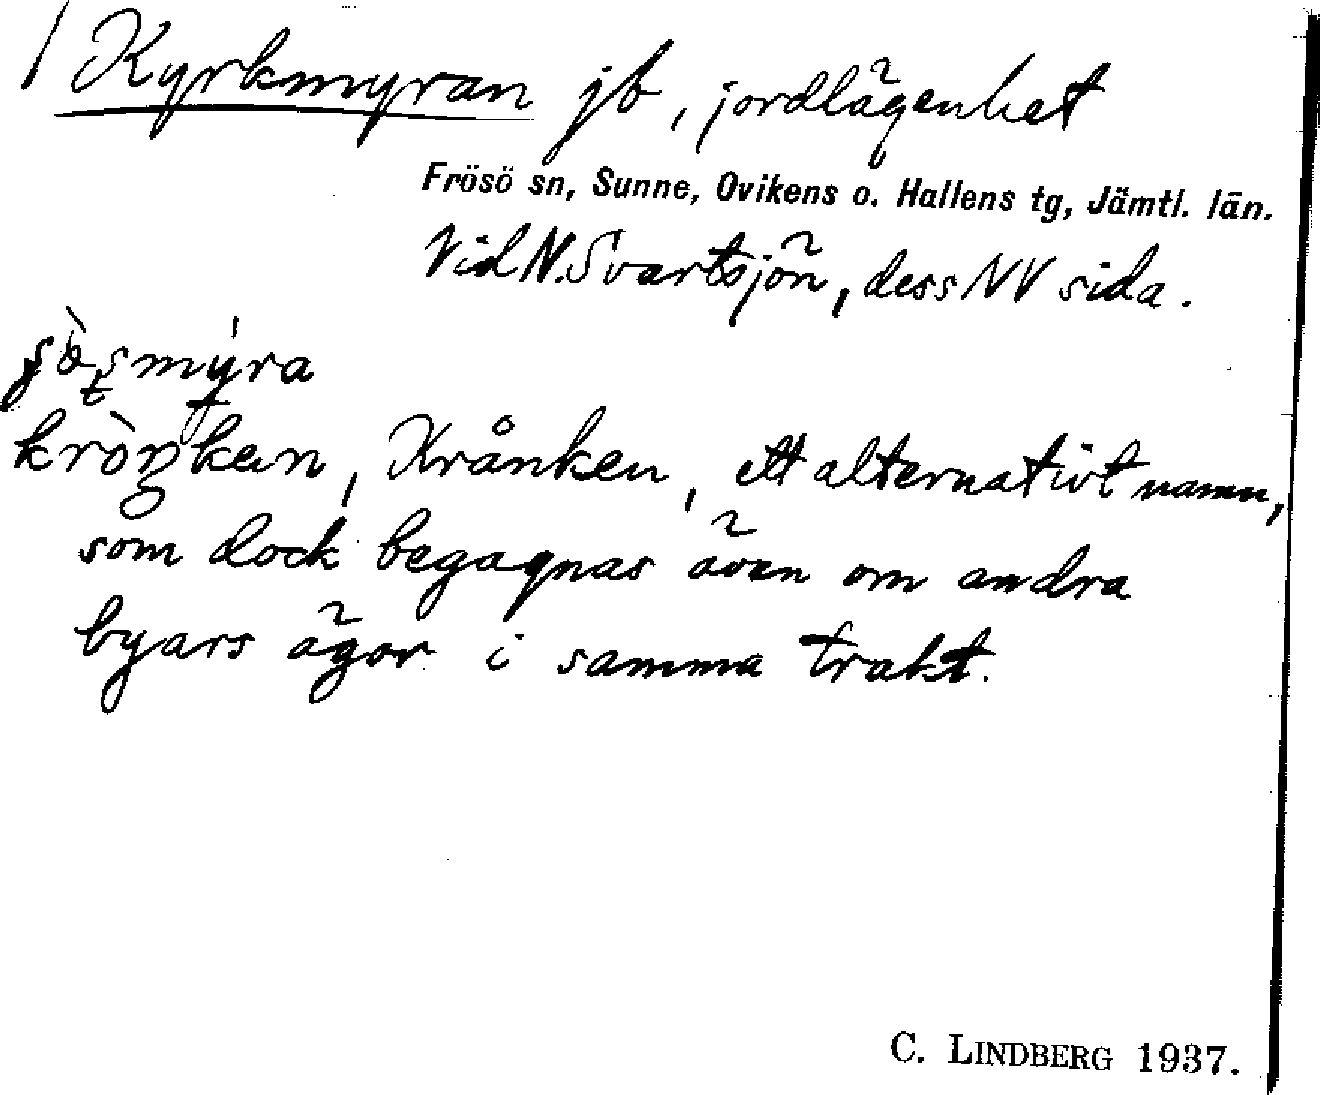 Kyrkmyran jb, jordlägenhet
Frösö sn, Sunne, Ovikens o. Hallens tg, Jämtl. län.
Vid N. Svartsjön, dess NV sida.
Krånken, ett alternativt namn,
som dock begagnas även om andra
byars ägor i samma trakt.
C. LINDBERG 1937.